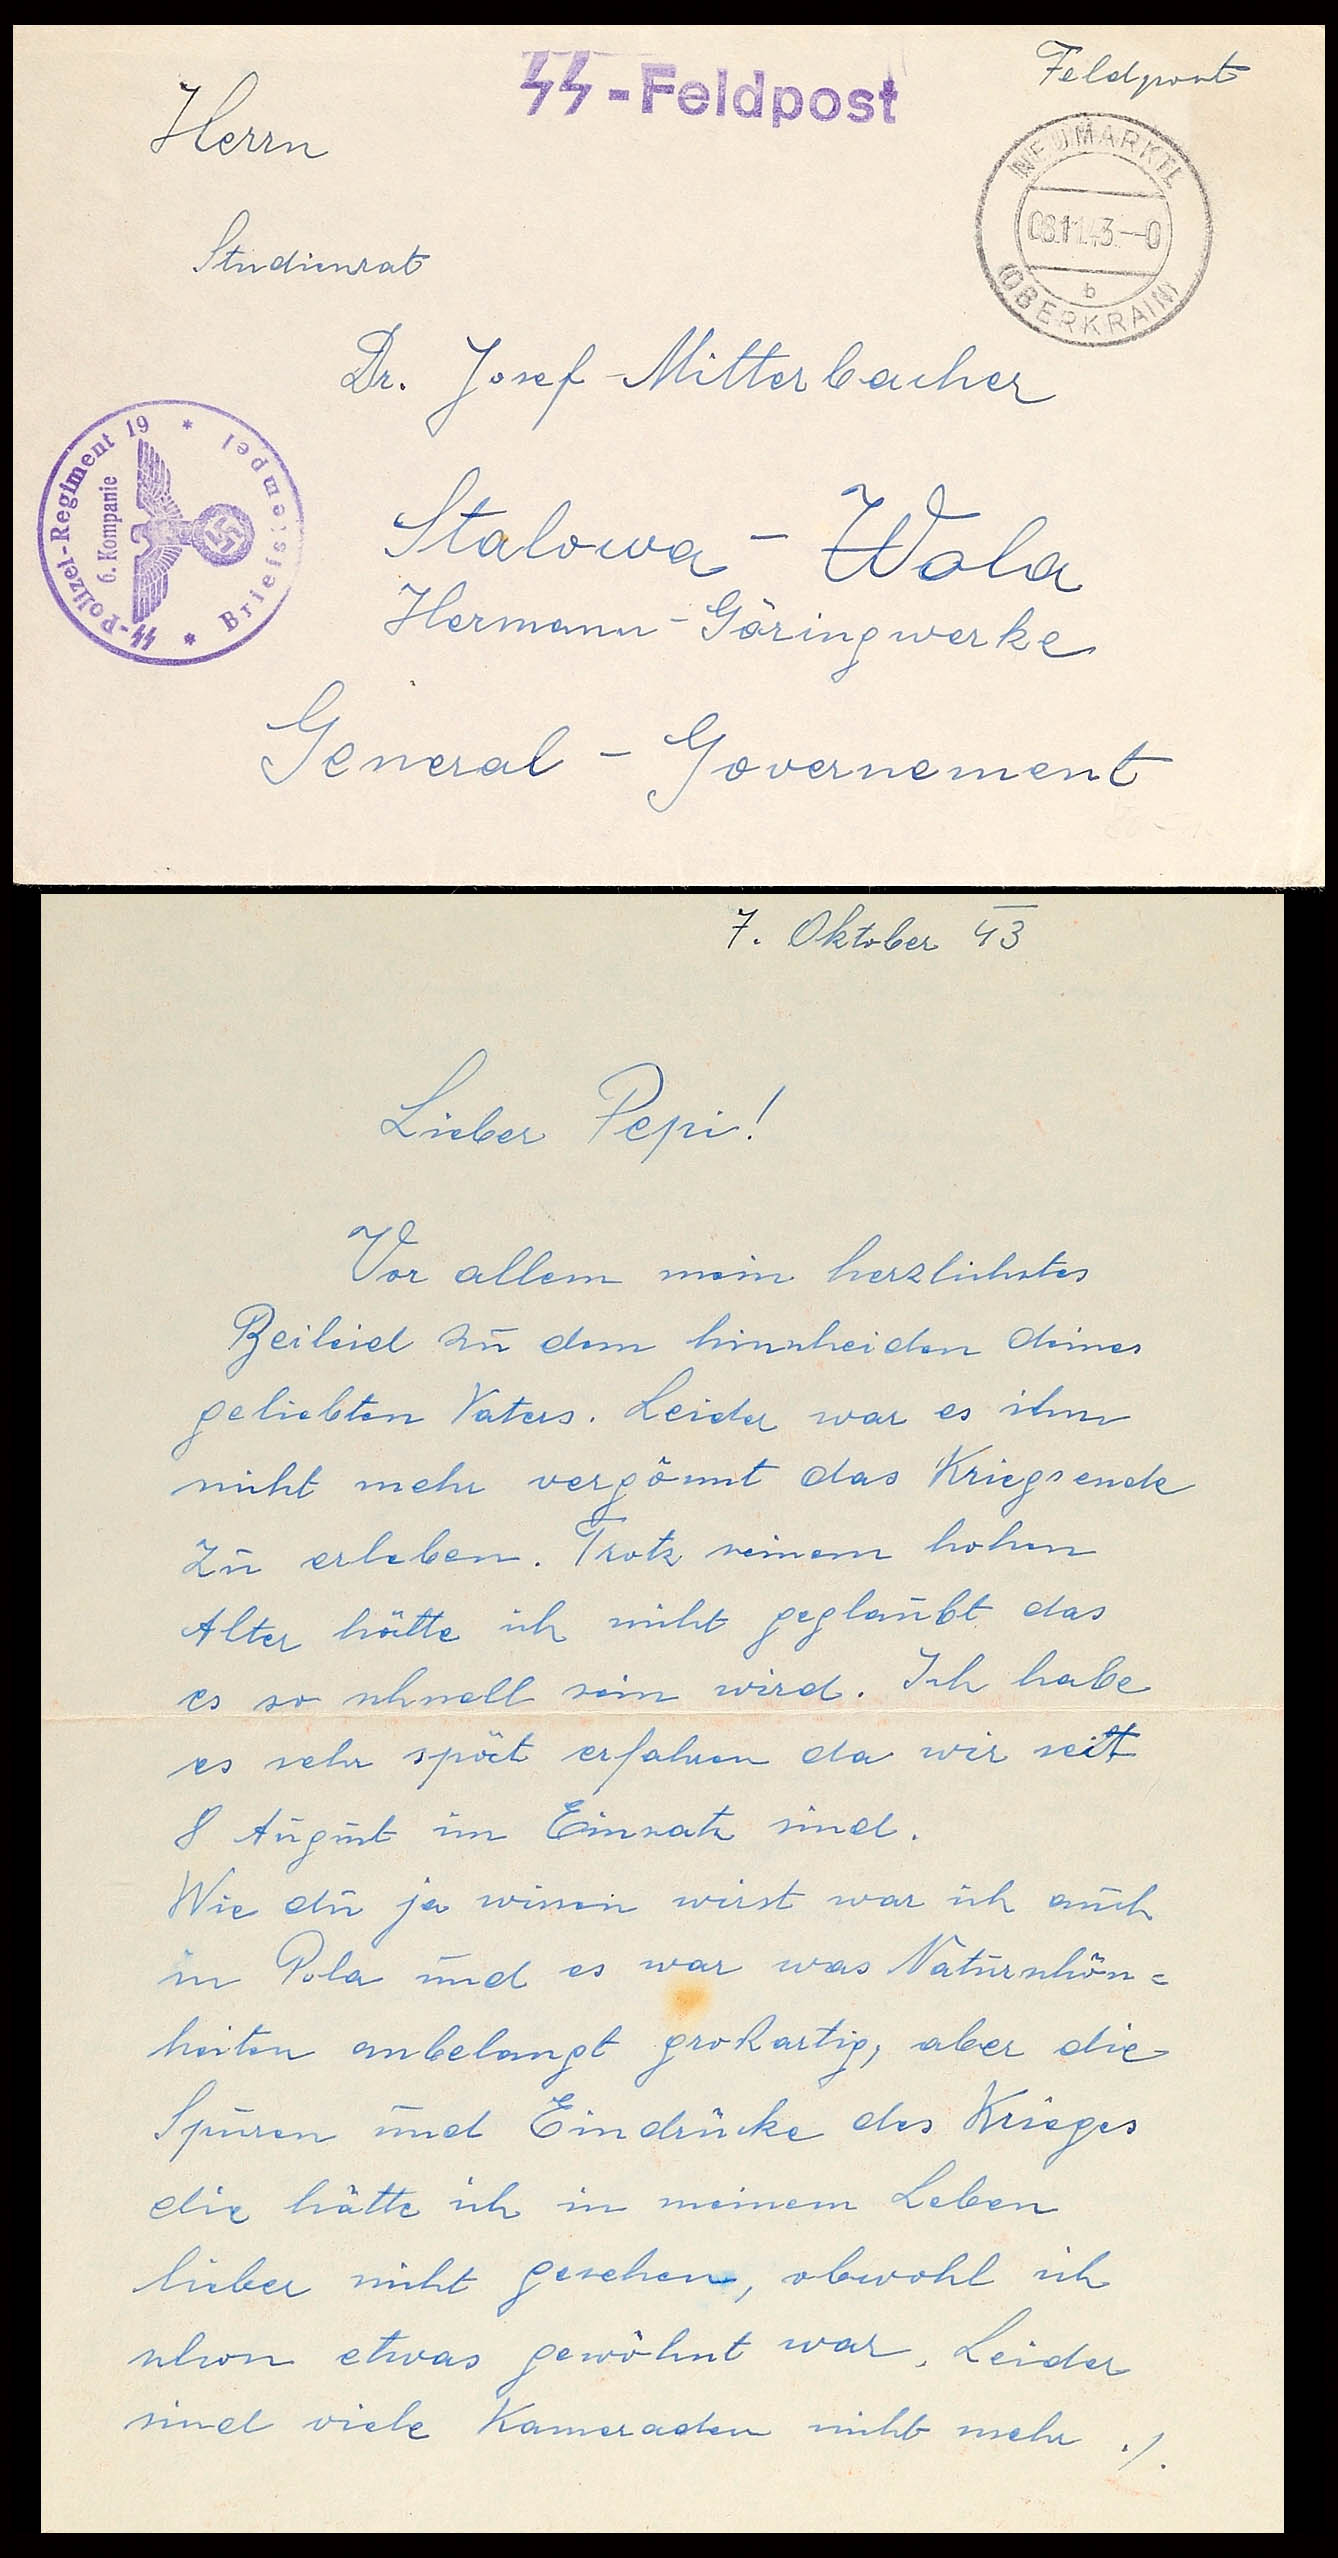 SS-Feldpost
Feldpost
Herrn
NEUMARKTL
08.11.43.--0
b
(OBERKRAIN)
Studienrat
Dr. Josef Mitterbacher
SS-Polizei-Regiment 19
6. Kompanie
* Briefstempel *
Stalowa - Wola
Hermann-Göringwerke
General - Governement
7. Oktober 43
Lieber Pepi!
Vor allem mein herzlichstes
Beileid zu dem hinscheiden deines
geliebten Vaters. Leider war es ihm
nicht mehr vergönnt das Kriegsende
zu erleben. Trotz seinem hohen
Alter hätte ich nicht geglaubt das
es so schnell sein wird. Ich habe
es sehr spät erfahren da wir seit
8 August im Einsatz sind.
Wie du ja wissen wirst war ich auch
in Pola und es war was Naturschön=
heiten anbelangt großartig, aber die
Spuren und Eindrücke des Krieges
die hätte ich in meinem Leben
lieber nicht gesehen, obwohl ich
schon etwas gewöhnt war. Leider
sind viele Kameraden nicht mehr ./.